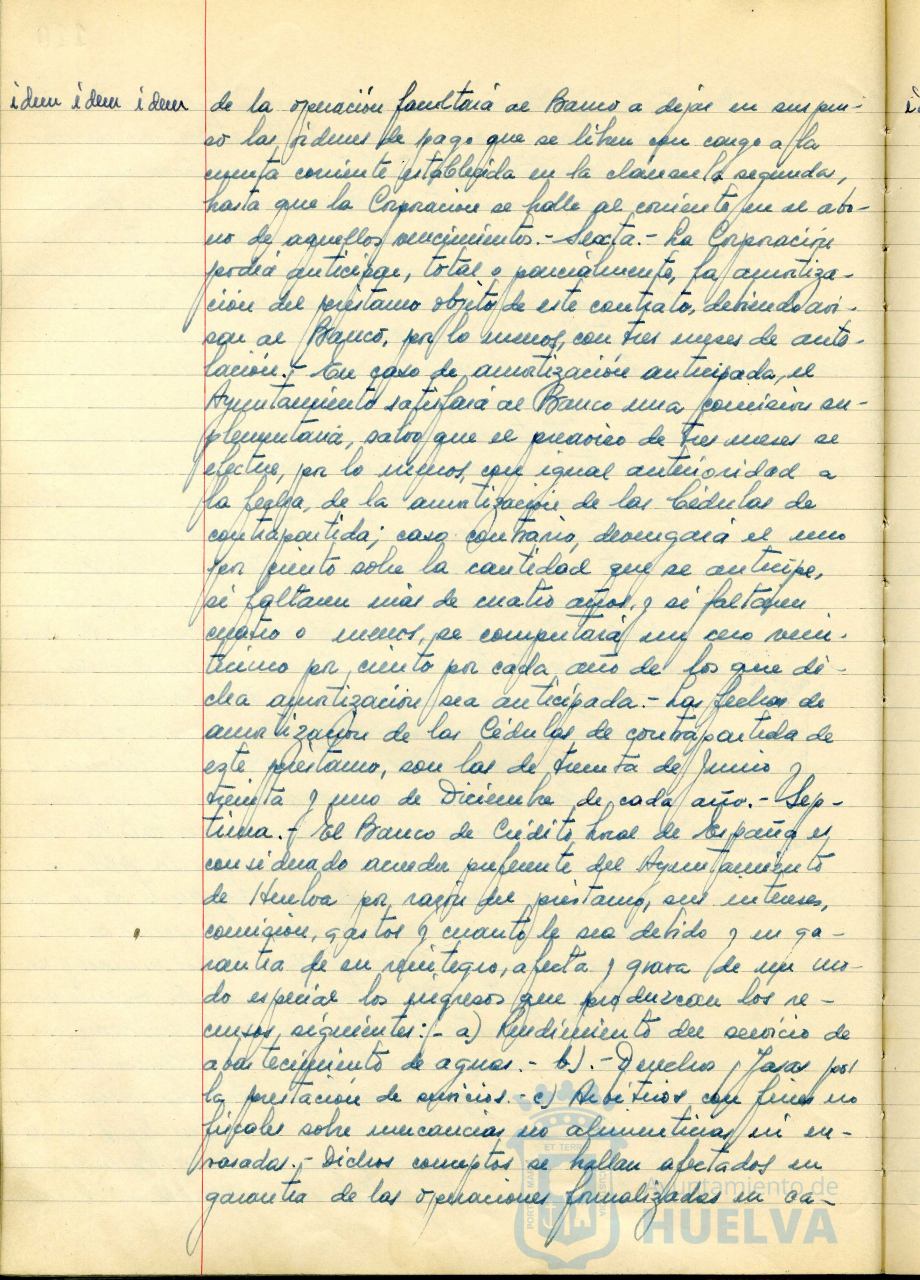 idem idem idem
de la operación facultará al Banco a dejar en suspen-
so las órdenes de pago que se libren con cargo a la
cuenta corriente establecida en la cláusula segunda,
hasta que la Corporación se halle al corriente en el abo-
no de aquellos vencimientos.- Sexta.- La Corporación
podrá anticipar, total o parcialmente, la amortiza-
ción del préstamo objeto de este contrato, debiendo avi-
sar al Banco, por lo menos, con tres meses de ante-
lación.- En caso de amortización anticipada, el
Ayuntamiento satisfará al Banco una comisión su-
plementaria, salvo que el preaviso de tres meses se
efectue, por lo menos, con igual anterioridad a
la fecha, de la amortización de las Cédulas de
contrapartida; caso contrario, devengará el uno
por ciento sobre la cantidad que se anticipe,
si faltaren más de cuatro años, y si faltaren
cuatro o menos, se computará un cero vein-
ticinco por ciento por cada año de los que di-
cha amortización sea anticipada.- Las fechas de
amortización de las Cédulas de contrapartida de
este préstamo, son las de treinta de Junio y
treinta y uno de Diciembre de cada año.- Sép-
tima.- El Banco de Crédito Local de España es
considerado acreedor preferente del Ayuntamiento
de Huelva por razón del préstamo, sus intereses,
comisión, gastos y cuanto le sea debido y en ga-
rantía de su reintegro, afecta y grava de un mo-
do especial los ingresos que produzcan los re-
cursos siguientes:- a) Rendimiento del servicio de
abastecimiento de aguas.- b).- Derechos y Tasas por
la prestación de servicios.- c) Arbitrios con fines no
fiscales sobre mercancías no alimenticias ni en-
vasadas.- Dichos conceptos se hallan afectados en
garantía de las operaciones formalizadas en ca-
Ayuntamiento de
HUELVA